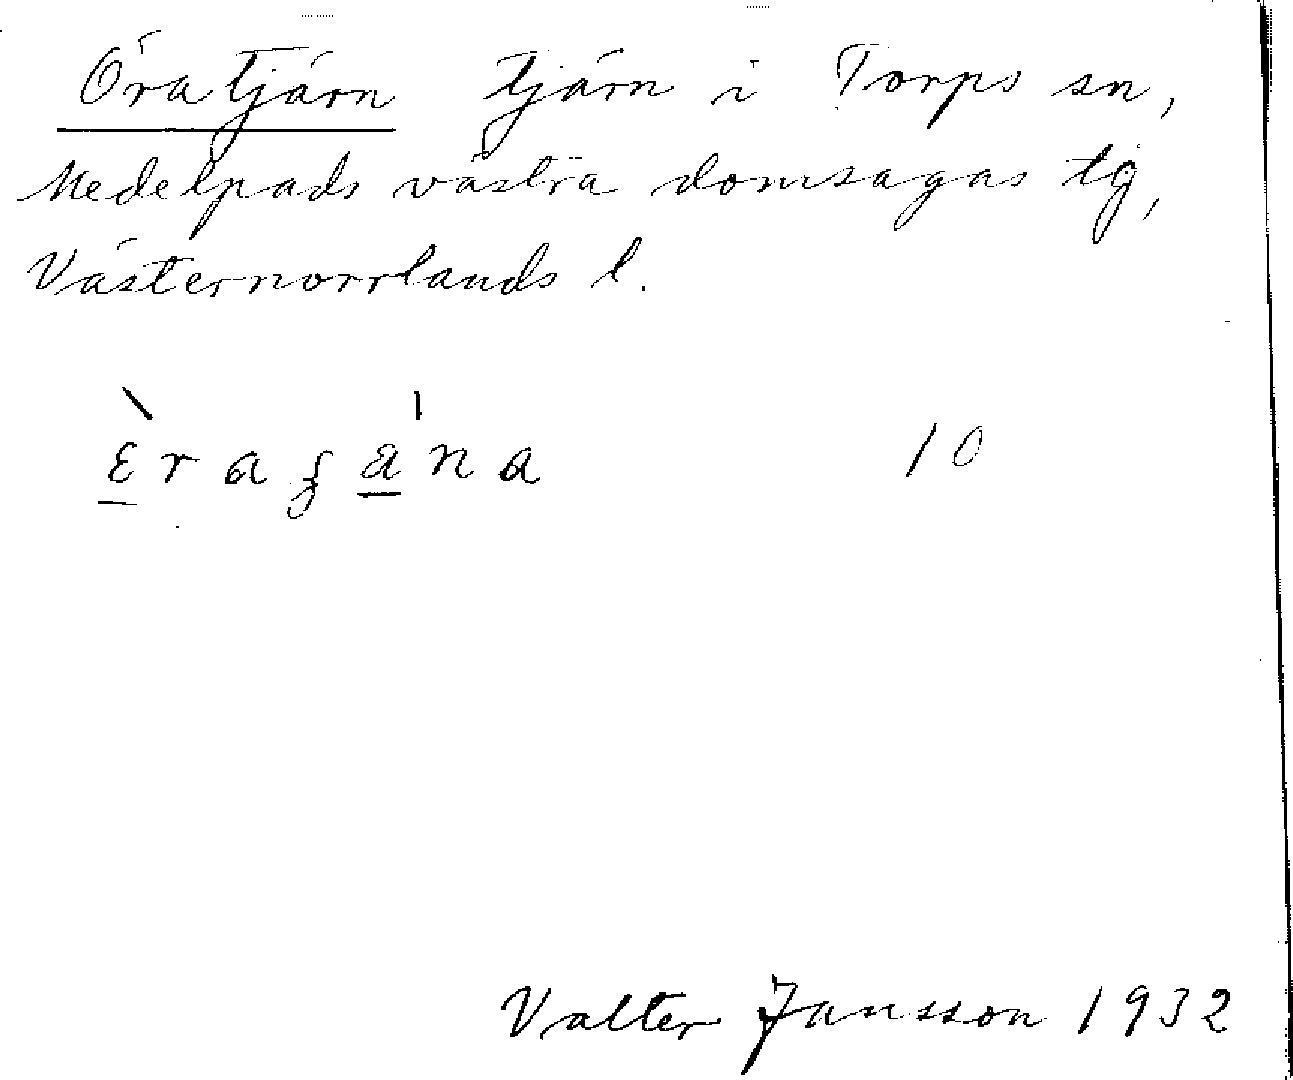 Öratjärn tjärn i Torps sn,
Medelpads västra domsagas tg,
Västernorrlands l.
ɛ̀raʂána 10
Valter Jansson 1932